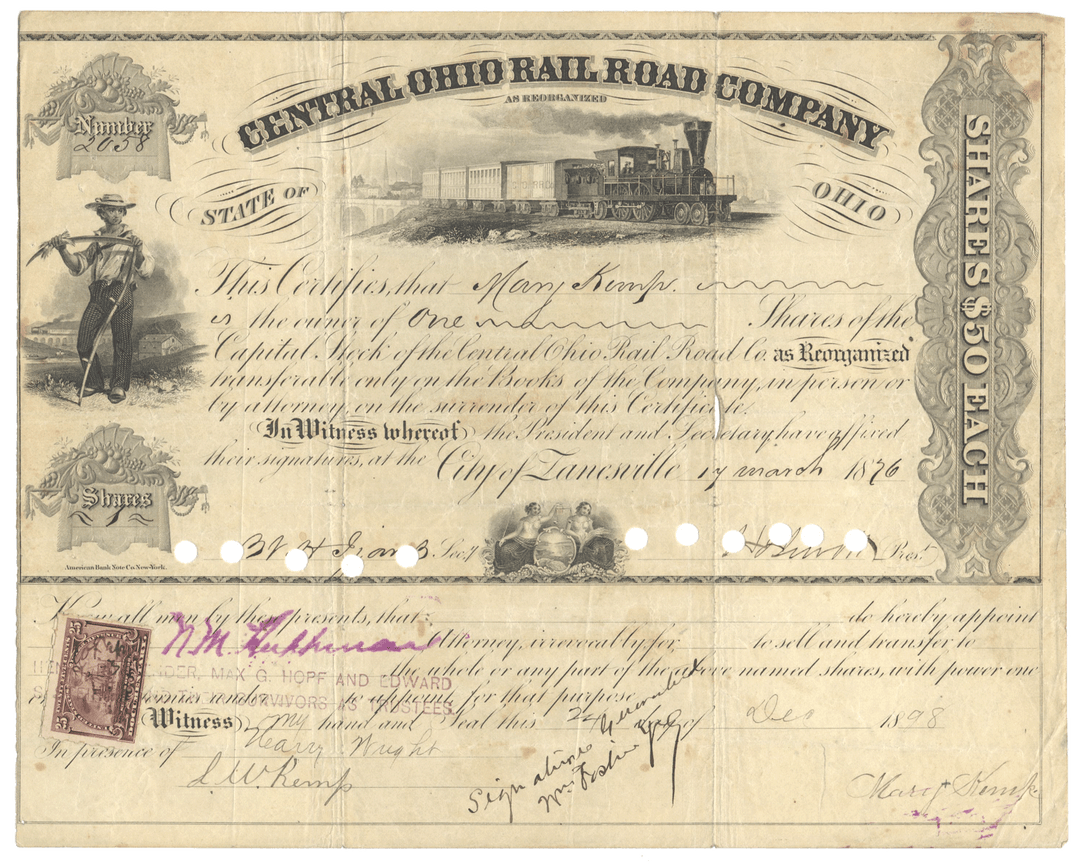 CENTRAL OHIO RAIL ROAD COMPANY
AS REORGANIZED
Number
2058
STATE OF
OHIO
SHARES $50 EACH
This Certifies, that Mary Kemp.
is the owner of One Shares of the
Capital Stock of the Central Ohio Rail Road Co. as Reorganized
transferable only on the Books of the Company, in person or
by attorney, on the surrender of this Certificate.
In Witness whereof, the President and Secretary, have affixed
their signatures, at the City of Zanesville 17 march 1876
Shares
1
W H Sec'y
Prest
American Bank Note Co. New-York.
Know all men by these presents, that do hereby appoint
N M Attorney, irrevocably, for to sell and transfer to
the whole or any part of the above named shares, with power one
MAX G. HOPF AND EDWARD
to appoint, for that purpose
SURVIVORS AS TRUSTEES
Witness my hand and Seal this 24 day of Dec 1898
In presence of Harry Wright
L. W. Kemp
Signature Guaranteed
Mary Kemp
25 25